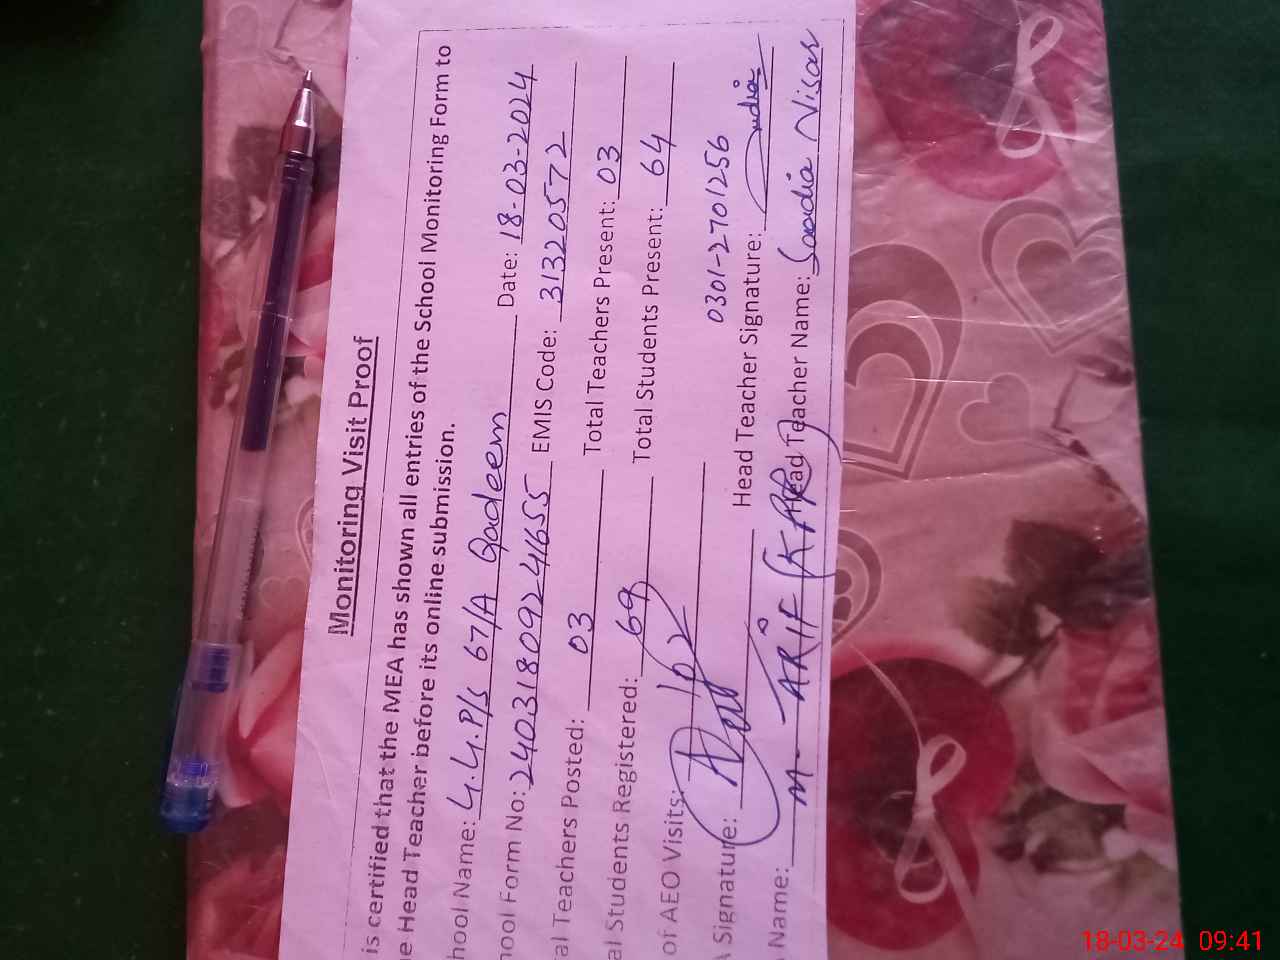 Monitoring Visit Proof
is certified that the MEA has shown all entries of the School Monitoring Form to
e Head Teacher before its online submission.
hool Name: G.G.P/S 67/A Qadeem Date: 18-03-2024
hool Form No: 24031809241655 EMIS Code: 31320572
al Teachers Posted: 03 Total Teachers Present: 03
al Students Registered: 69 Total Students Present: 64
of AEO Visits: 02
0301-2701256
A Signature: Head Teacher Signature: Sadia
Name: M. ARIF (KPR) Head Teacher Name: Saadia Nisar
18-03-24 09:41